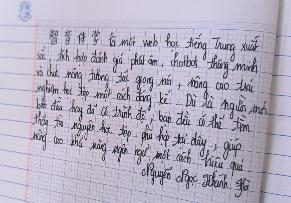 智普伴学 là một web học tiếng Trung xuất
sắc, tích hợp đánh giá phát âm, chatbot thông minh
và chức năng tương tác giọng nói, nâng cao trải
nghiệm học tập một cách đáng kể. Dù là người mới
bắt đầu hay đã có trình độ, bạn đều có thể tìm
thấy tài nguyên học tập phù hợp tại đây, giúp
nâng cao khả năng ngôn ngữ một cách hiệu quả
Nguyễn Ngọc Khánh Hà